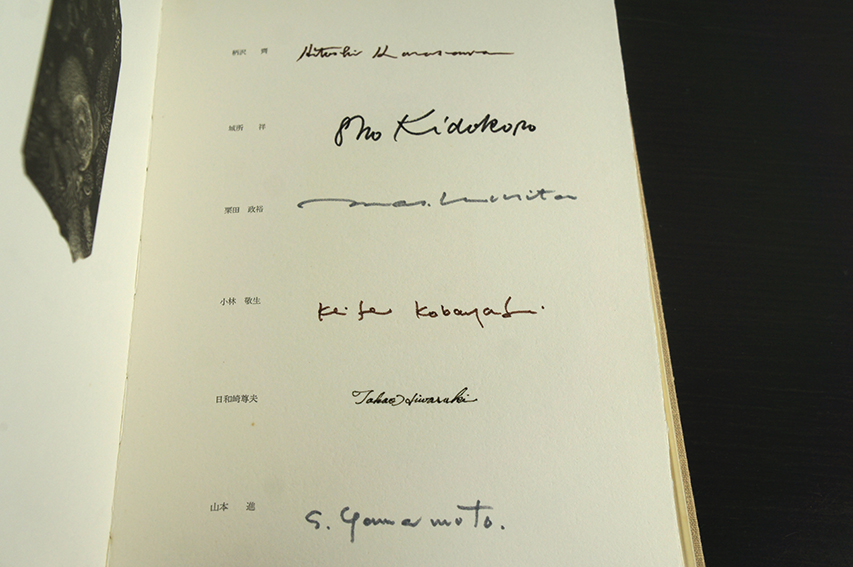 柄沢 齊 Hitoshi Karasawa
城所 祥 Sho Kidokoro
栗田 政裕 mas. kurita
小林 敬生 Keisei Kobayashi
日和崎尊夫 Takao Hiwasaki
山本 進 S. Yamamoto.